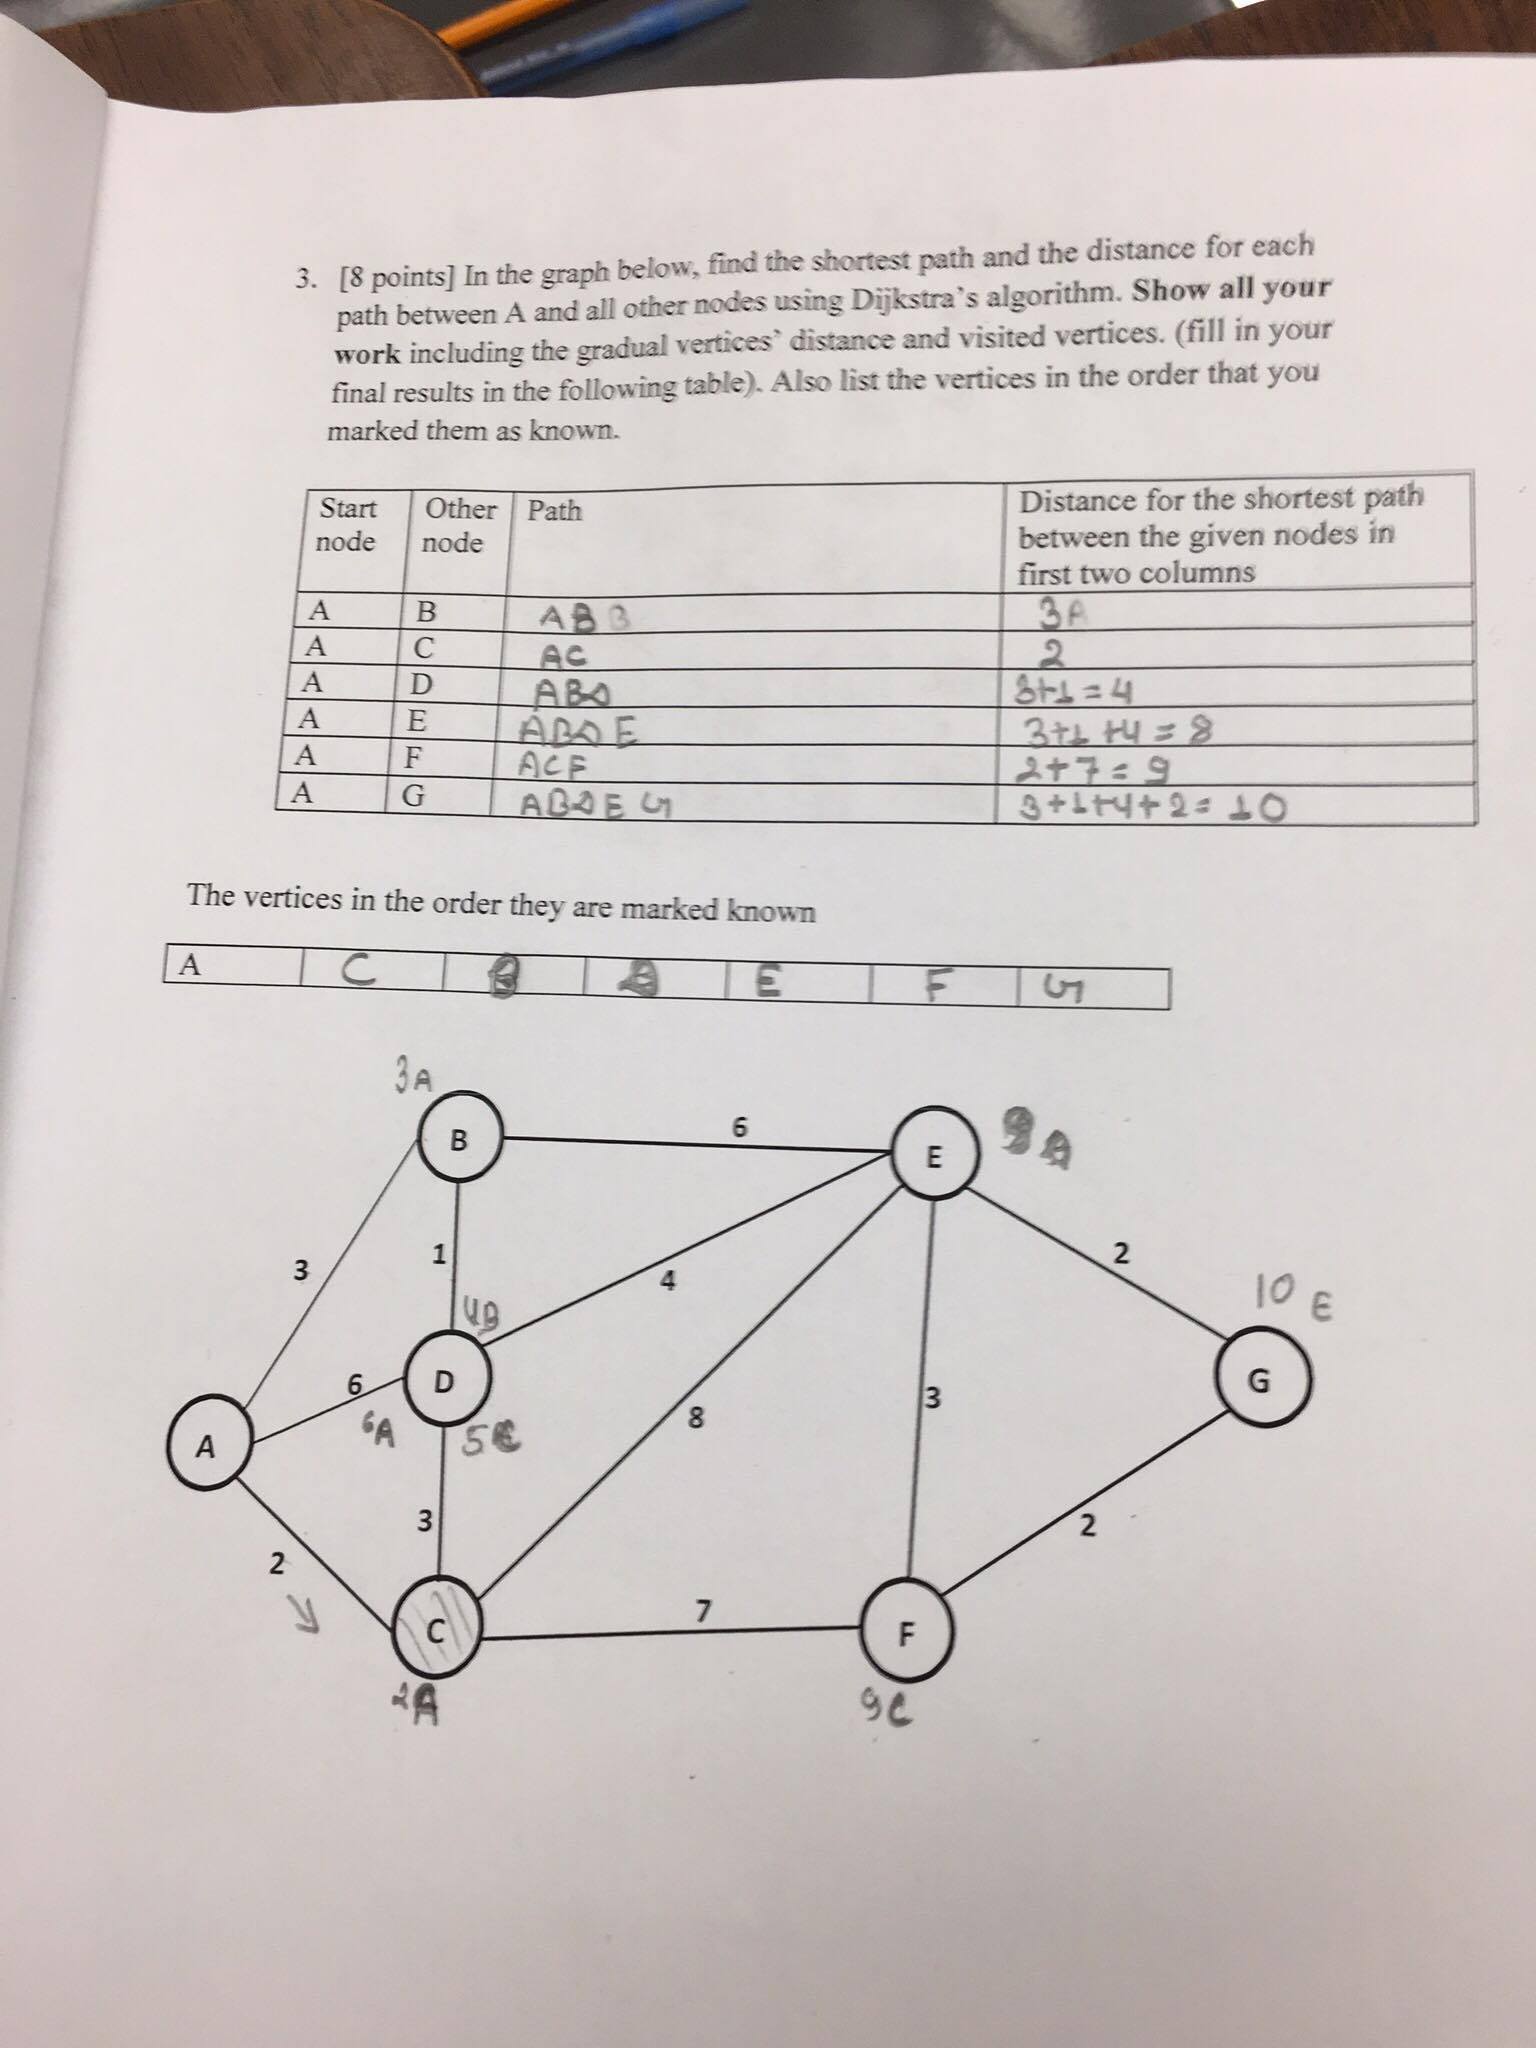 3. [8 points] In the graph below, find the shortest path and the distance for each
path between A and all other nodes using Dijkstra's algorithm. Show all your
work including the gradual vertices' distance and visited vertices. (fill in your
final results in the following table). Also list the vertices in the order that you
marked them as known.
Start node Other node Path Distance for the shortest path between the given nodes in first two columns
A B AB 3
A C AC 2
A D ABD 3+1=4
A E ABDE 3+1+4=8
A F ACF 2+7=9
A G ABDEG 3+1+4+2=10
The vertices in the order they are marked known
A C B D E F G
3A
B 6 E
3 1 4 2
4B 10 E
6 D G
A 6A 5C 8 3
3 2
2
C 7 F
2A 9C